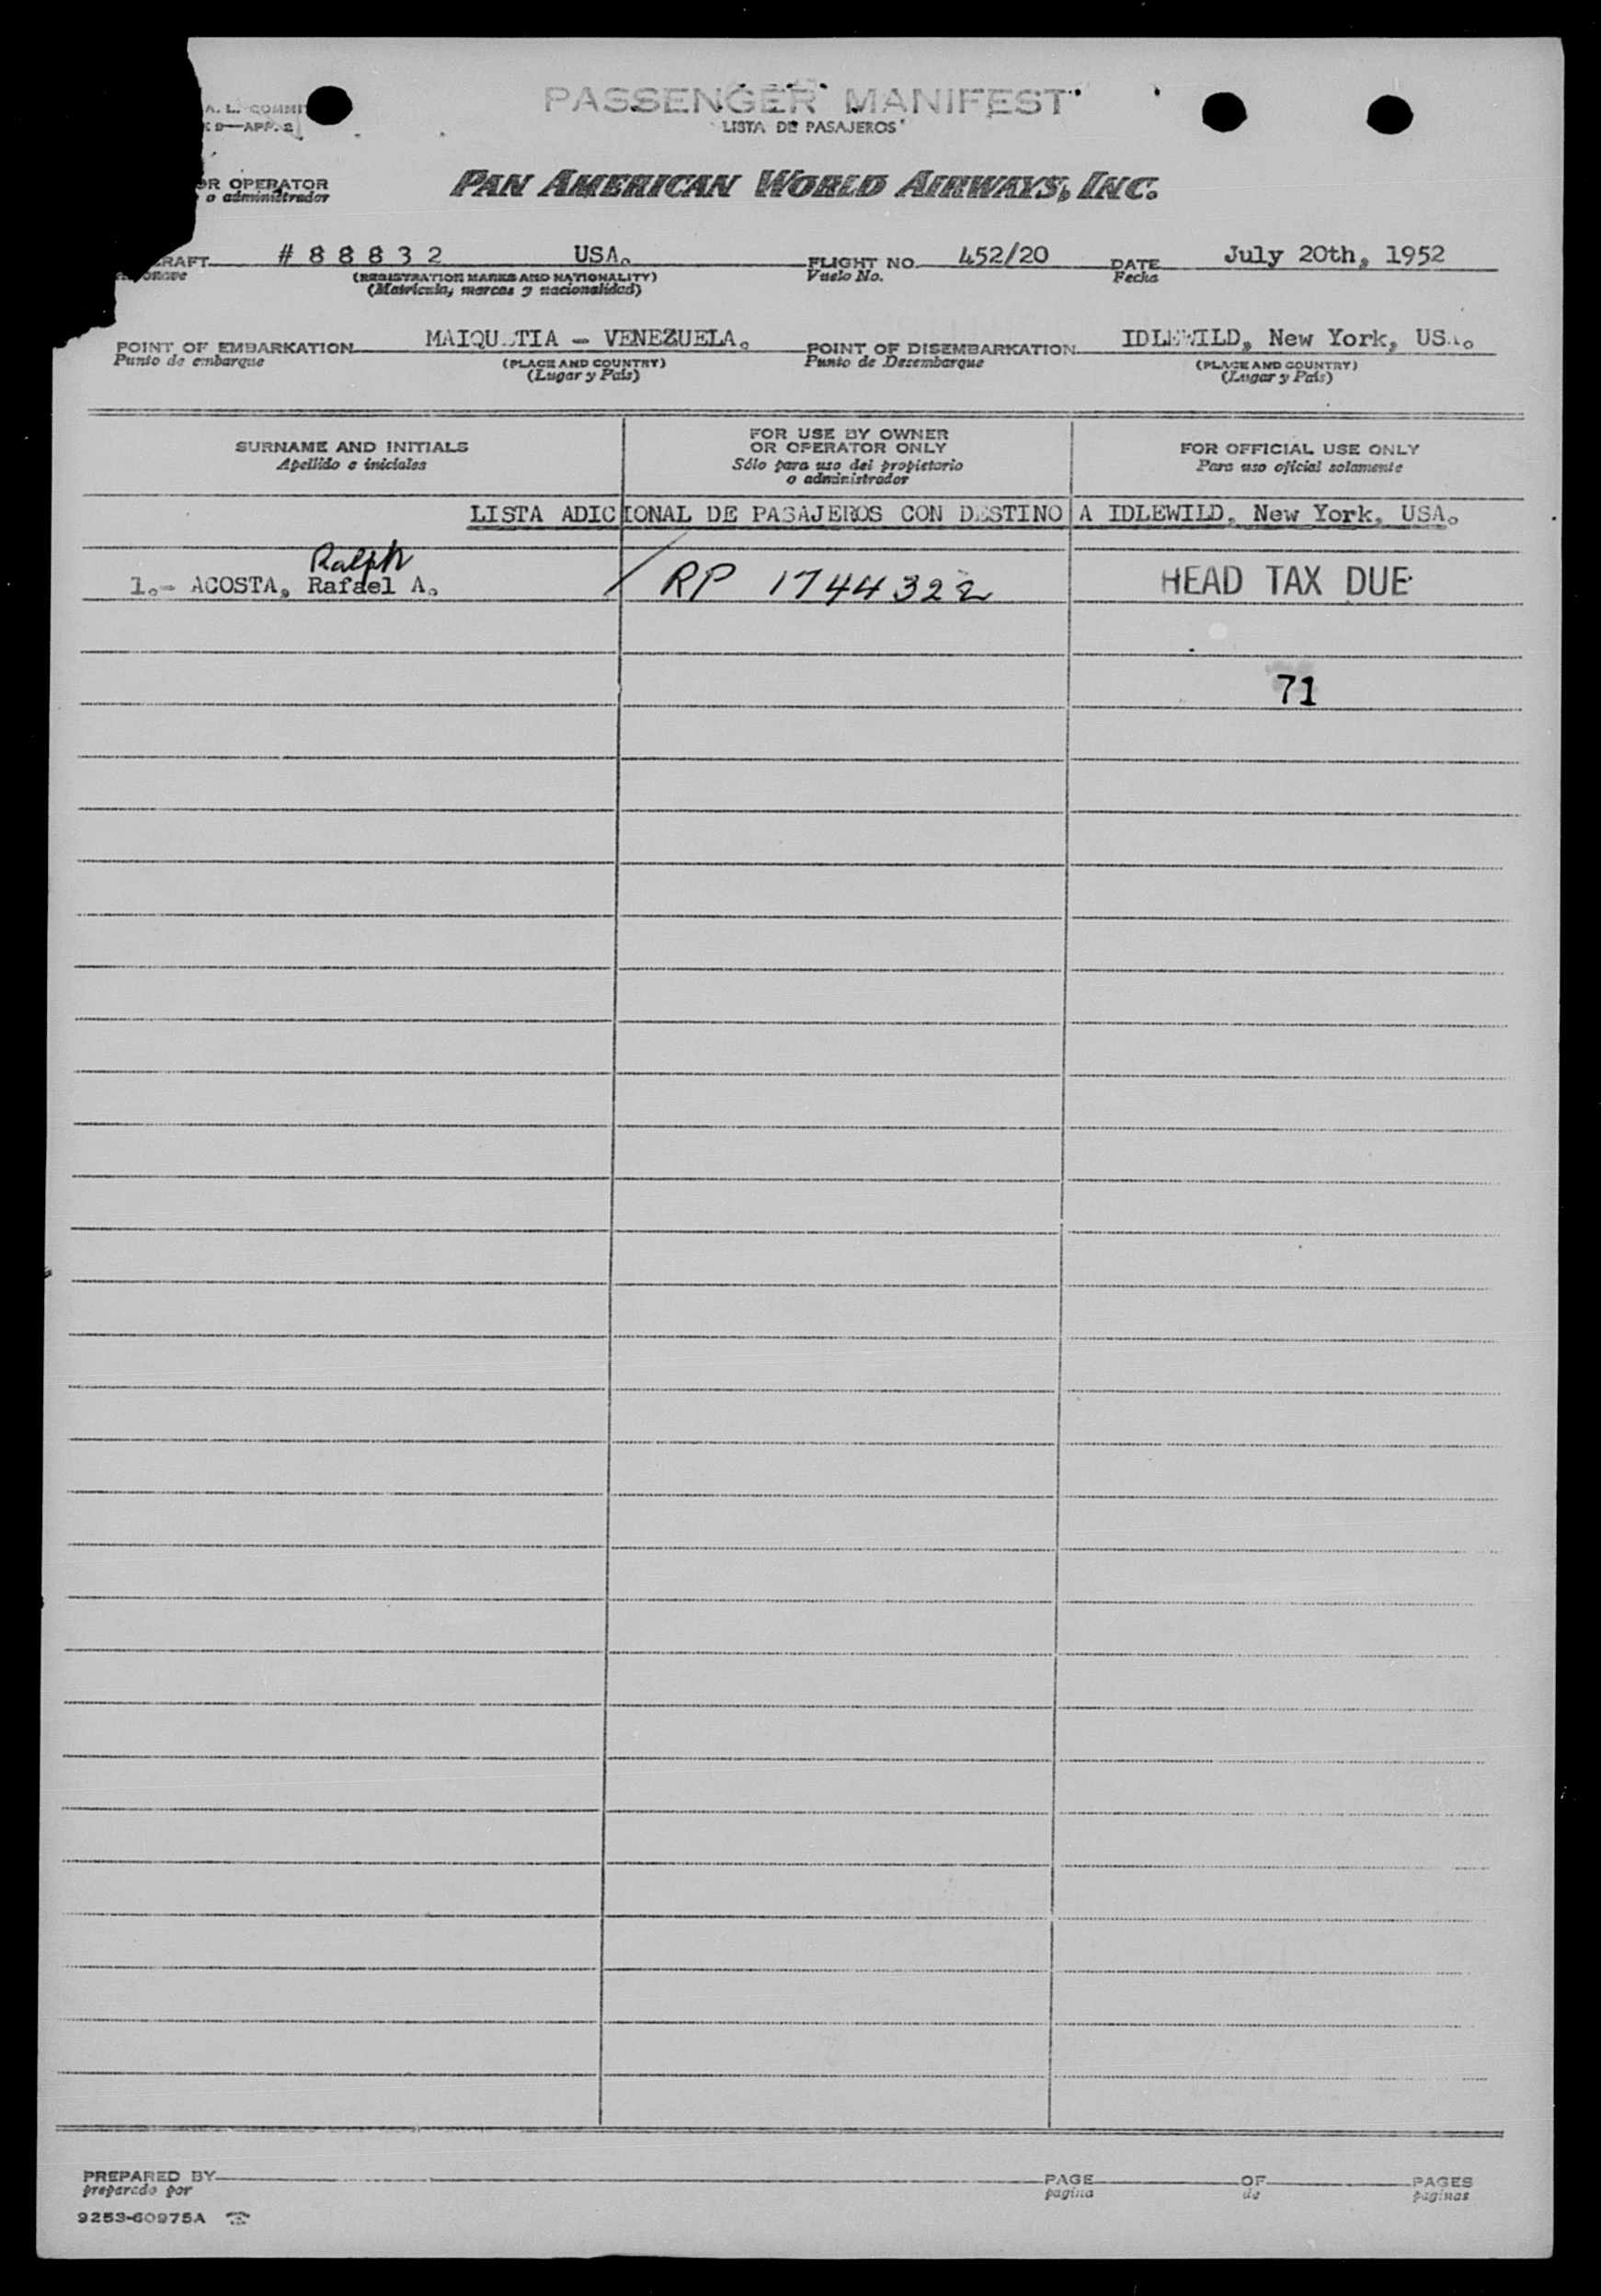 A. L. COMMI
PASSENGER MANIFEST
LISTA DE PASAJEROS
9—APP. 2
OR OPERATOR
o administrador
PAN AMERICAN WORLD AIRWAYS, INC.
RAFT # 8 8 8 3 2 USA. FLIGHT NO. 452/20 DATE July 20th, 1952
(REGISTRATION MARKS AND NATIONALITY) Vuelo No. Fecha
(Matricula, marcas y nacionalidad)
POINT OF EMBARKATION MAIQU TIA - VENEZUELA. POINT OF DISEMBARKATION IDLEWILD, New York, USA.
Punto de embarque (PLACE AND COUNTRY) Punto de Desembarque (PLACE AND COUNTRY)
(Lugar y País) (Lugar y País)
SURNAME AND INITIALS
Apellido e iniciales
FOR USE BY OWNER
OR OPERATOR ONLY
Sólo para uso del propietario
o administrador
FOR OFFICIAL USE ONLY
Para uso oficial solamente
LISTA ADICIONAL DE PASAJEROS CON DESTINO A IDLEWILD, New York, USA.
Ralph
1.- ACOSTA, Rafael A. RP 1744322 HEAD TAX DUE
71
PREPARED BY PAGE OF PAGES
preparado por pagina de paginas
9253-60975A